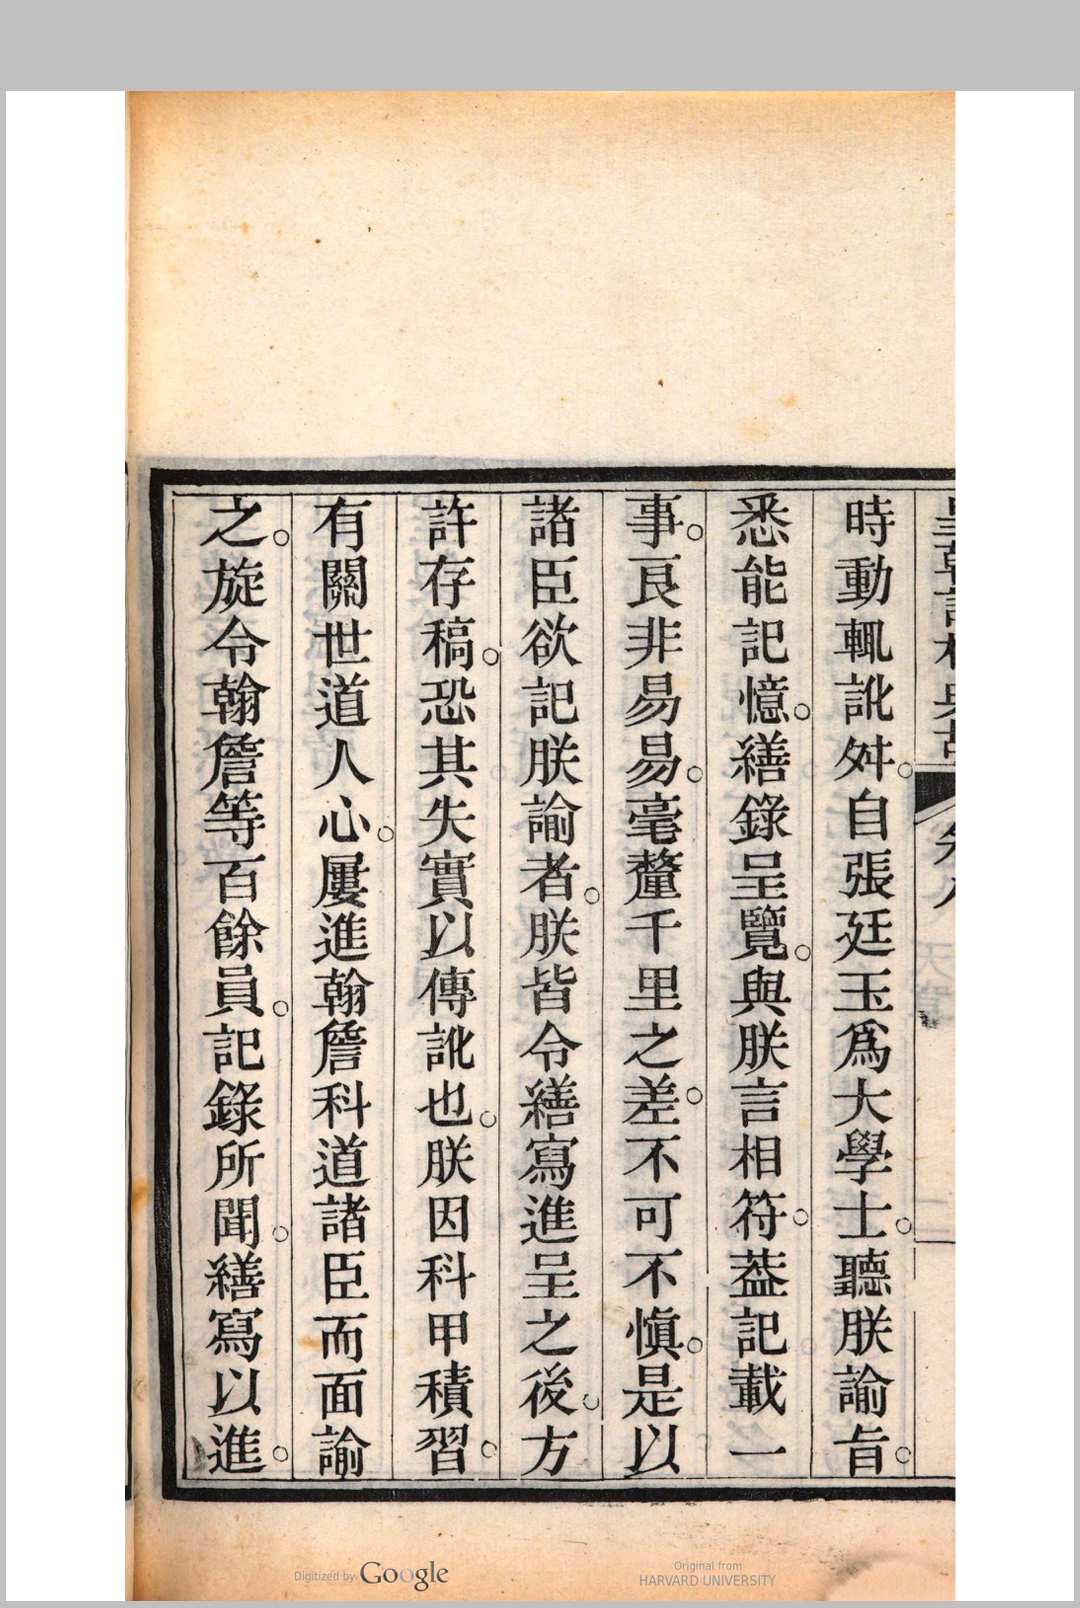 時動輒訛舛。自張廷玉爲大學士。聽朕諭旨。
悉能記憶。繕錄呈覽。與朕言相符。葢記載一
事。良非易易。毫釐千里之差。不可不愼。是以
諸臣欲記朕諭者。朕皆令繕寫進呈之後。方
許存稿。恐其失實以傳訛也。朕因科甲積習。
有關世道人心。屢進翰詹科道諸臣而面諭
之。旋令翰詹等百餘員。記錄所聞。繕寫以進。
Digitized by Google
Original from
HARVARD UNIVERSITY